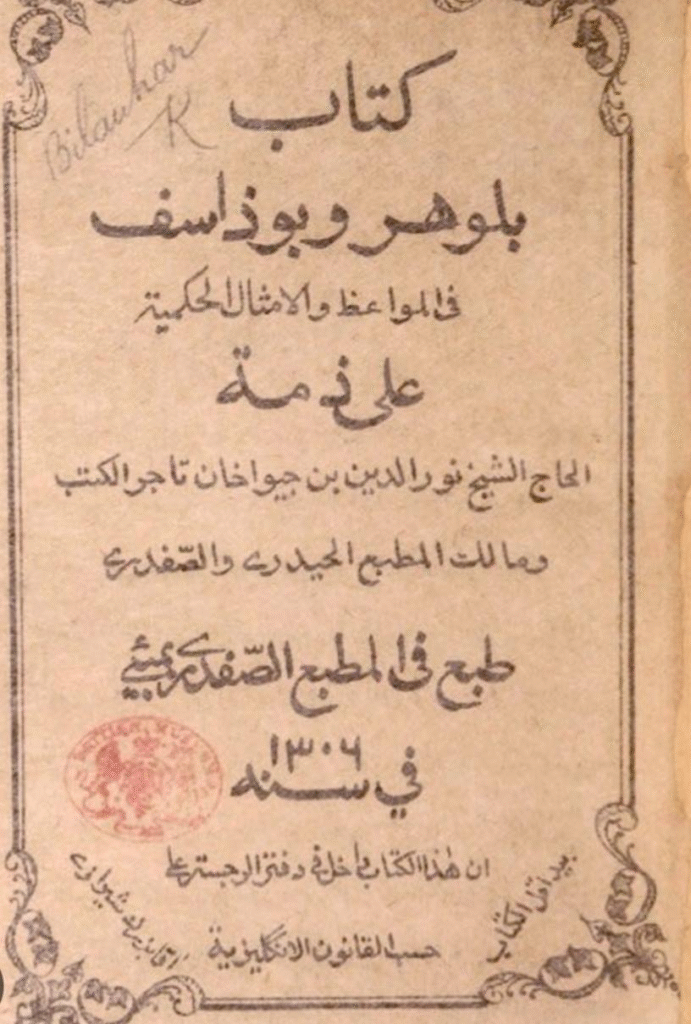 Bilauhar
K
كتاب
بلوهر وبوذاسف
في المواعظ والامثال الحكمية
على ذمة
الحاج الشيخ نور الدين بن جيواخان تاجر الكتب
ومالك المطبع الحيدرى والصّفدرى
طبع فى المطبع الصّفدرى بمبئي
في سنه ١٣٠٦
ان هذا الكتاب داخل فى دفتر الرجستر على
حسب القانون الانگليزية
بيد اقل الكتاب
شيرازى